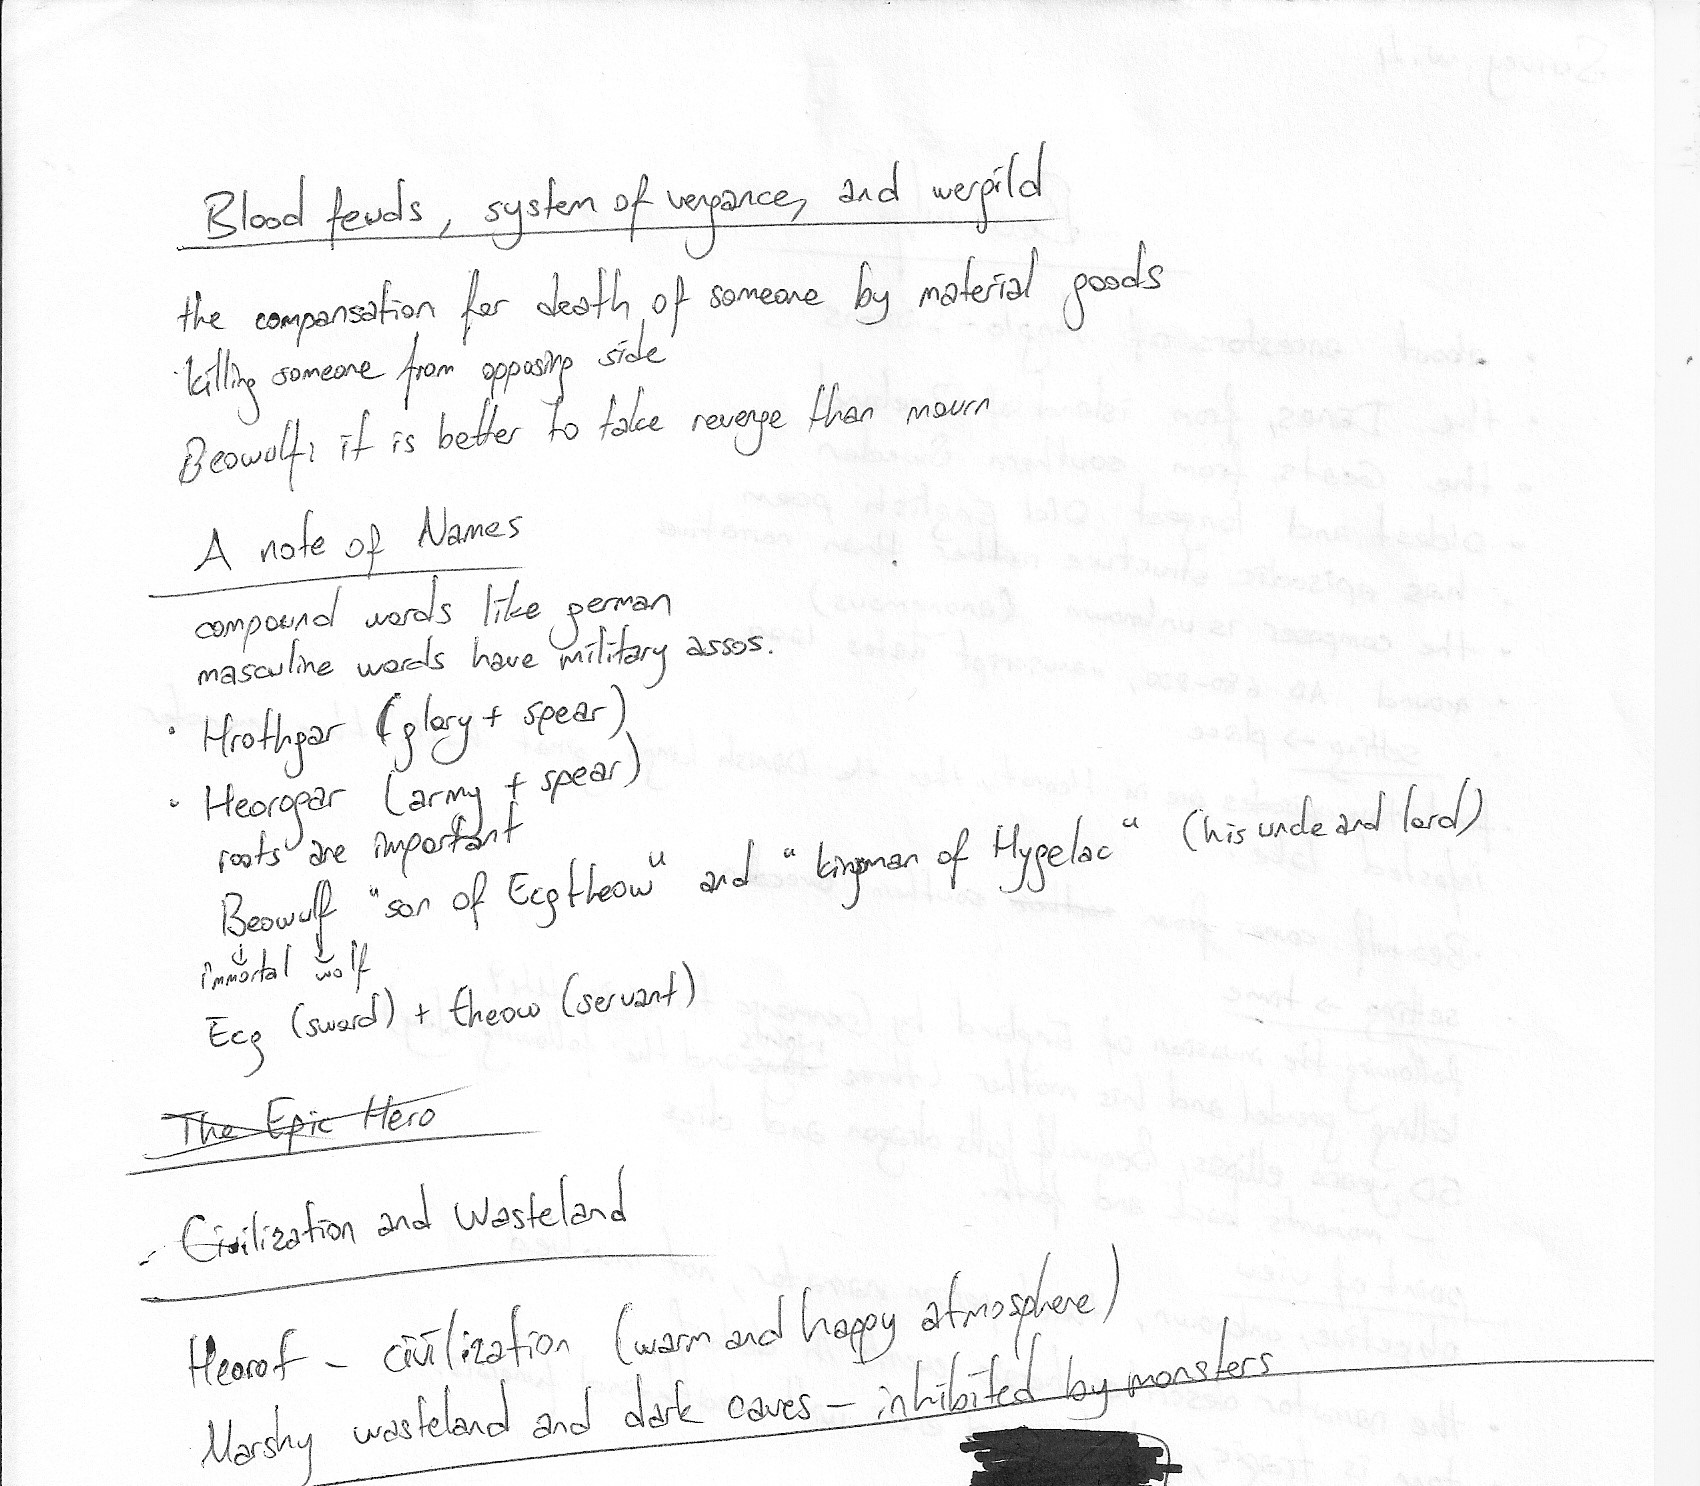 Blood feuds, system of vengance, and wergild
the compansation for death of someone by material goods
killing someone from opposing side
Beowulf: it is better to take revenge than mourn
A note of Names
compound words like german
masculine words have military assos.
• Hrothgar (glory + spear)
• Heorogar (army + spear)
roots are important
Beowulf "son of Ecgtheow" and "kingman of Hygelac" (his uncle and lord)
immortal wolf
Ecg (sword) + theow (servant)
The Epic Hero
- Civilization and Wasteland
Heorot - civilization (warm and happy atmosphere)
Marshy wasteland and dark caves - inhibited by monsters